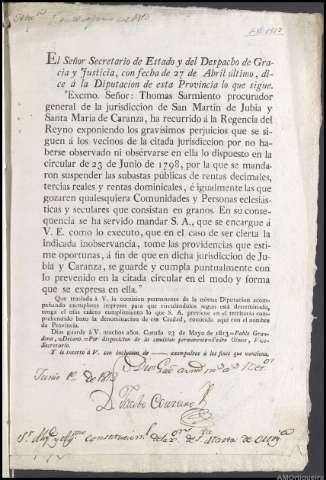 El Señor Secretario de Estado y del Despacho de Gra-
cia y Justicia, con fecha de 27 de Abril último, di-
ce á la Diputacion de esta Provincia lo que sigue.
"Excmo. Señor: Thomas Sarmiento procurador
general de la jurisdiccion de San Martin de Jubia y
Santa Maria de Caranza, ha recurrido á la Regencia del
Reyno exponiendo los gravísimos perjuicios que se si-
guen á los vecinos de la citada jurisdiccion por no ha-
berse observado ni observarse en ella lo dispuesto en la
circular de 23 de Junio de 1798, por la que se manda-
ron suspender las subastas públicas de rentas decimales,
tercias reales y rentas dominicales, é igualmente las que
gozaren qualesquiera Comunidades y Personas eclesiás-
ticas y seculares que consistan en granos. En su conse-
quencia se ha servido mandar S. A., que se encargue á
V. E. como lo executo, que en el caso de ser cierta la
indicada inobservancia, tome las providencias que esti-
me oportunas, á fin de que en dicha jurisdiccion de Ju-
bia y Caranza, se guarde y cumpla puntualmente con
lo prevenido en la citada circular en el modo y forma
que se expresa en ella."
Que traslada á V. la comision permanente de la misma Diputacion acom-
pañando exemplares impresos para que circulándolos segun está determinado,
tenga el mas exâcto cumplimiento lo que S. A. previene en el territorio
comprehendido baxo la denominacion de esa Ciudad, conocido aquí con el nombre
de Provincia.
Dios guarde á V. muchos años. Coruña 23 de Mayo de 1813.=Pablo Gran-
dona, =Decano.=Por disposicion de la comision permanente=Pedro Giner, Vice-
Secretario.
Y lo inserto á V. con inclusion de exemplares á los fines que previene.
Junio 1º de 1813
D. Jacobo